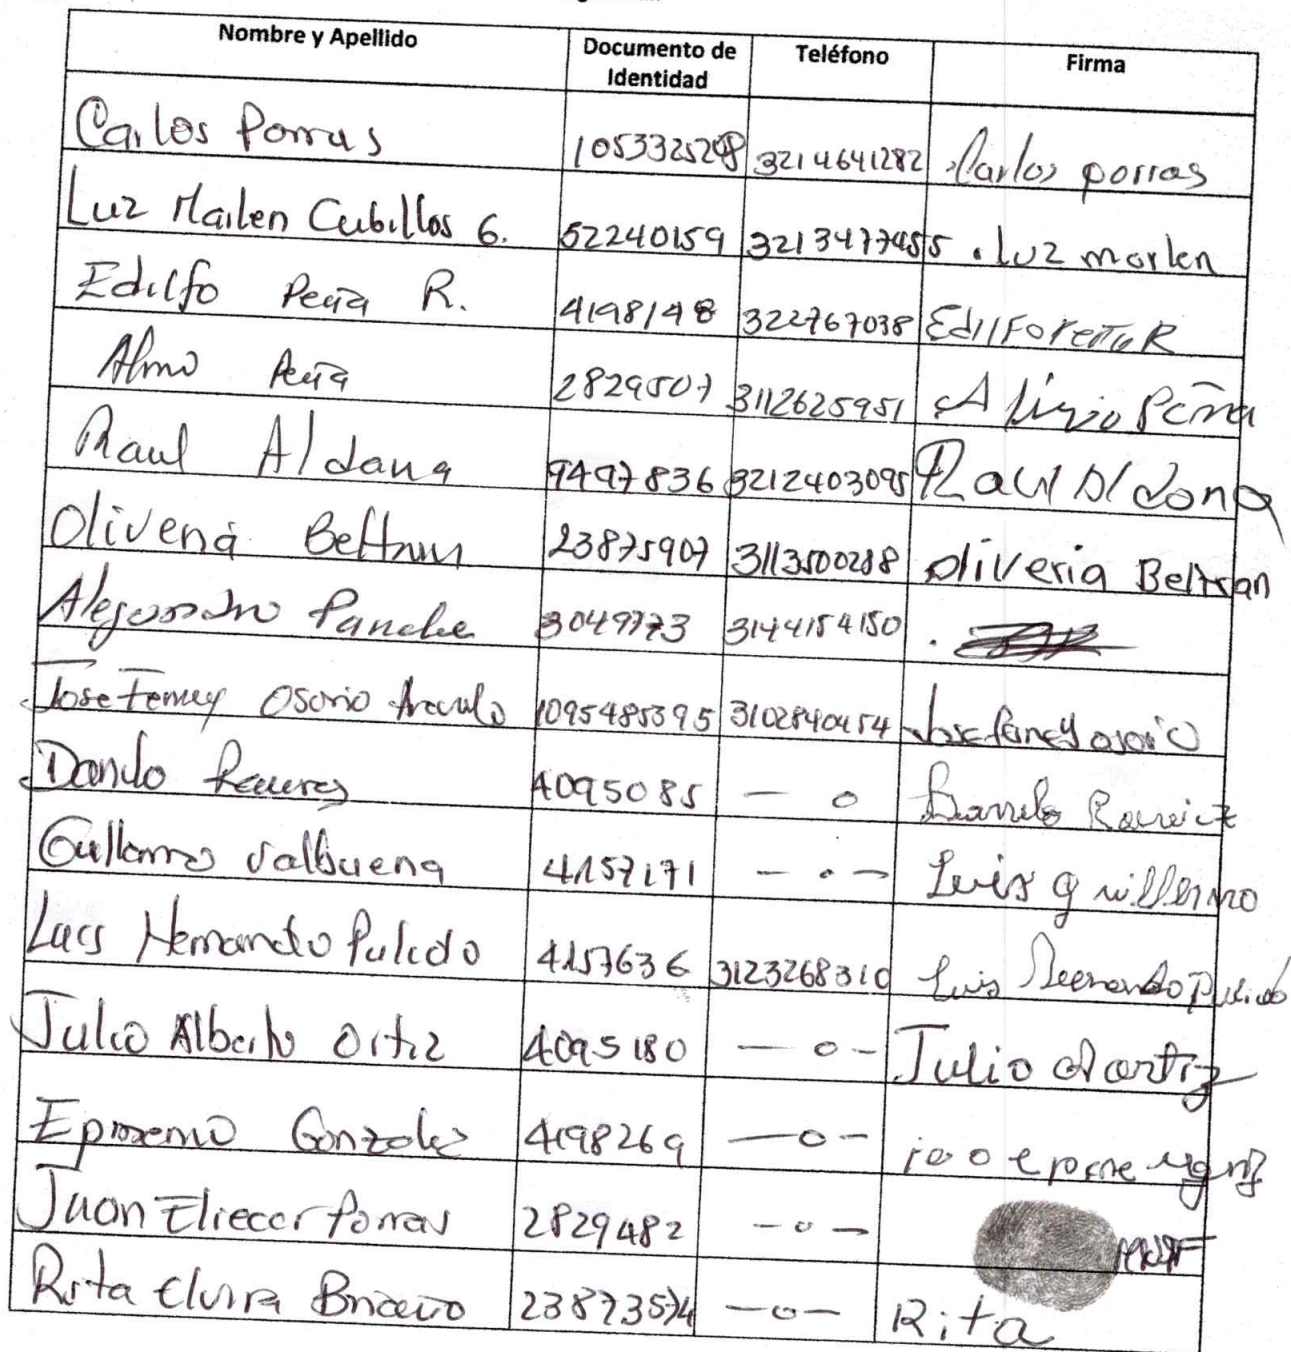 Nombre y Apellido Documento de Identidad Teléfono Firma
Carlos Porras 1053325248 3214641282 Carlos porras
Luz Marlen Cubillos G. 52240159 3213477455 Luz marlen
Edilfo Peña R. 4198148 322767038 Edilfo Peña R
Peña 2829507 3112625951 Alirio Peña
Raul Aldana 9497836 3212403095 Raul Aldana
Oliveria Beltran 23875907 3113500288 oliveria Beltran
Alejandro Panche 3049773 3144154150
Jose Ferney Osorio 1095485395 3102840454 Jose ferney osorio
Danilo Ramirez 4095085 — o Danilo Ramirez
Guillermo Valbuena 4157171 — . — Luis guillermo
Luis Hernando Pulido 4157636 3123268310 Luis Hernando Pulido
Julio Alberto Ortiz 4095180 — o - Julio A ortiz
Gonzalez 4198269 — o -
Juan Eliecer Porras 2829482 — o —
Rita Elvira Briceño 23873574 — o — Rita